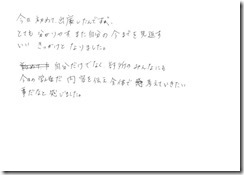 今日初めて出席したんですが、
とても分かりやすくまた自分の今までを見返す
いいきっかけとなりました。
自分だけでなく、 のみんなにも
今日の 内容を伝え全体で考えていきたい
事だなと感じました。